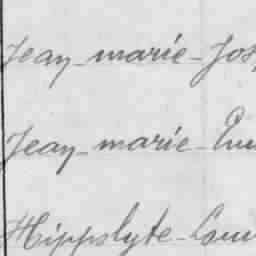 Jean-marie-Jos
Jean-marie-Em
Hippolyte-Lou